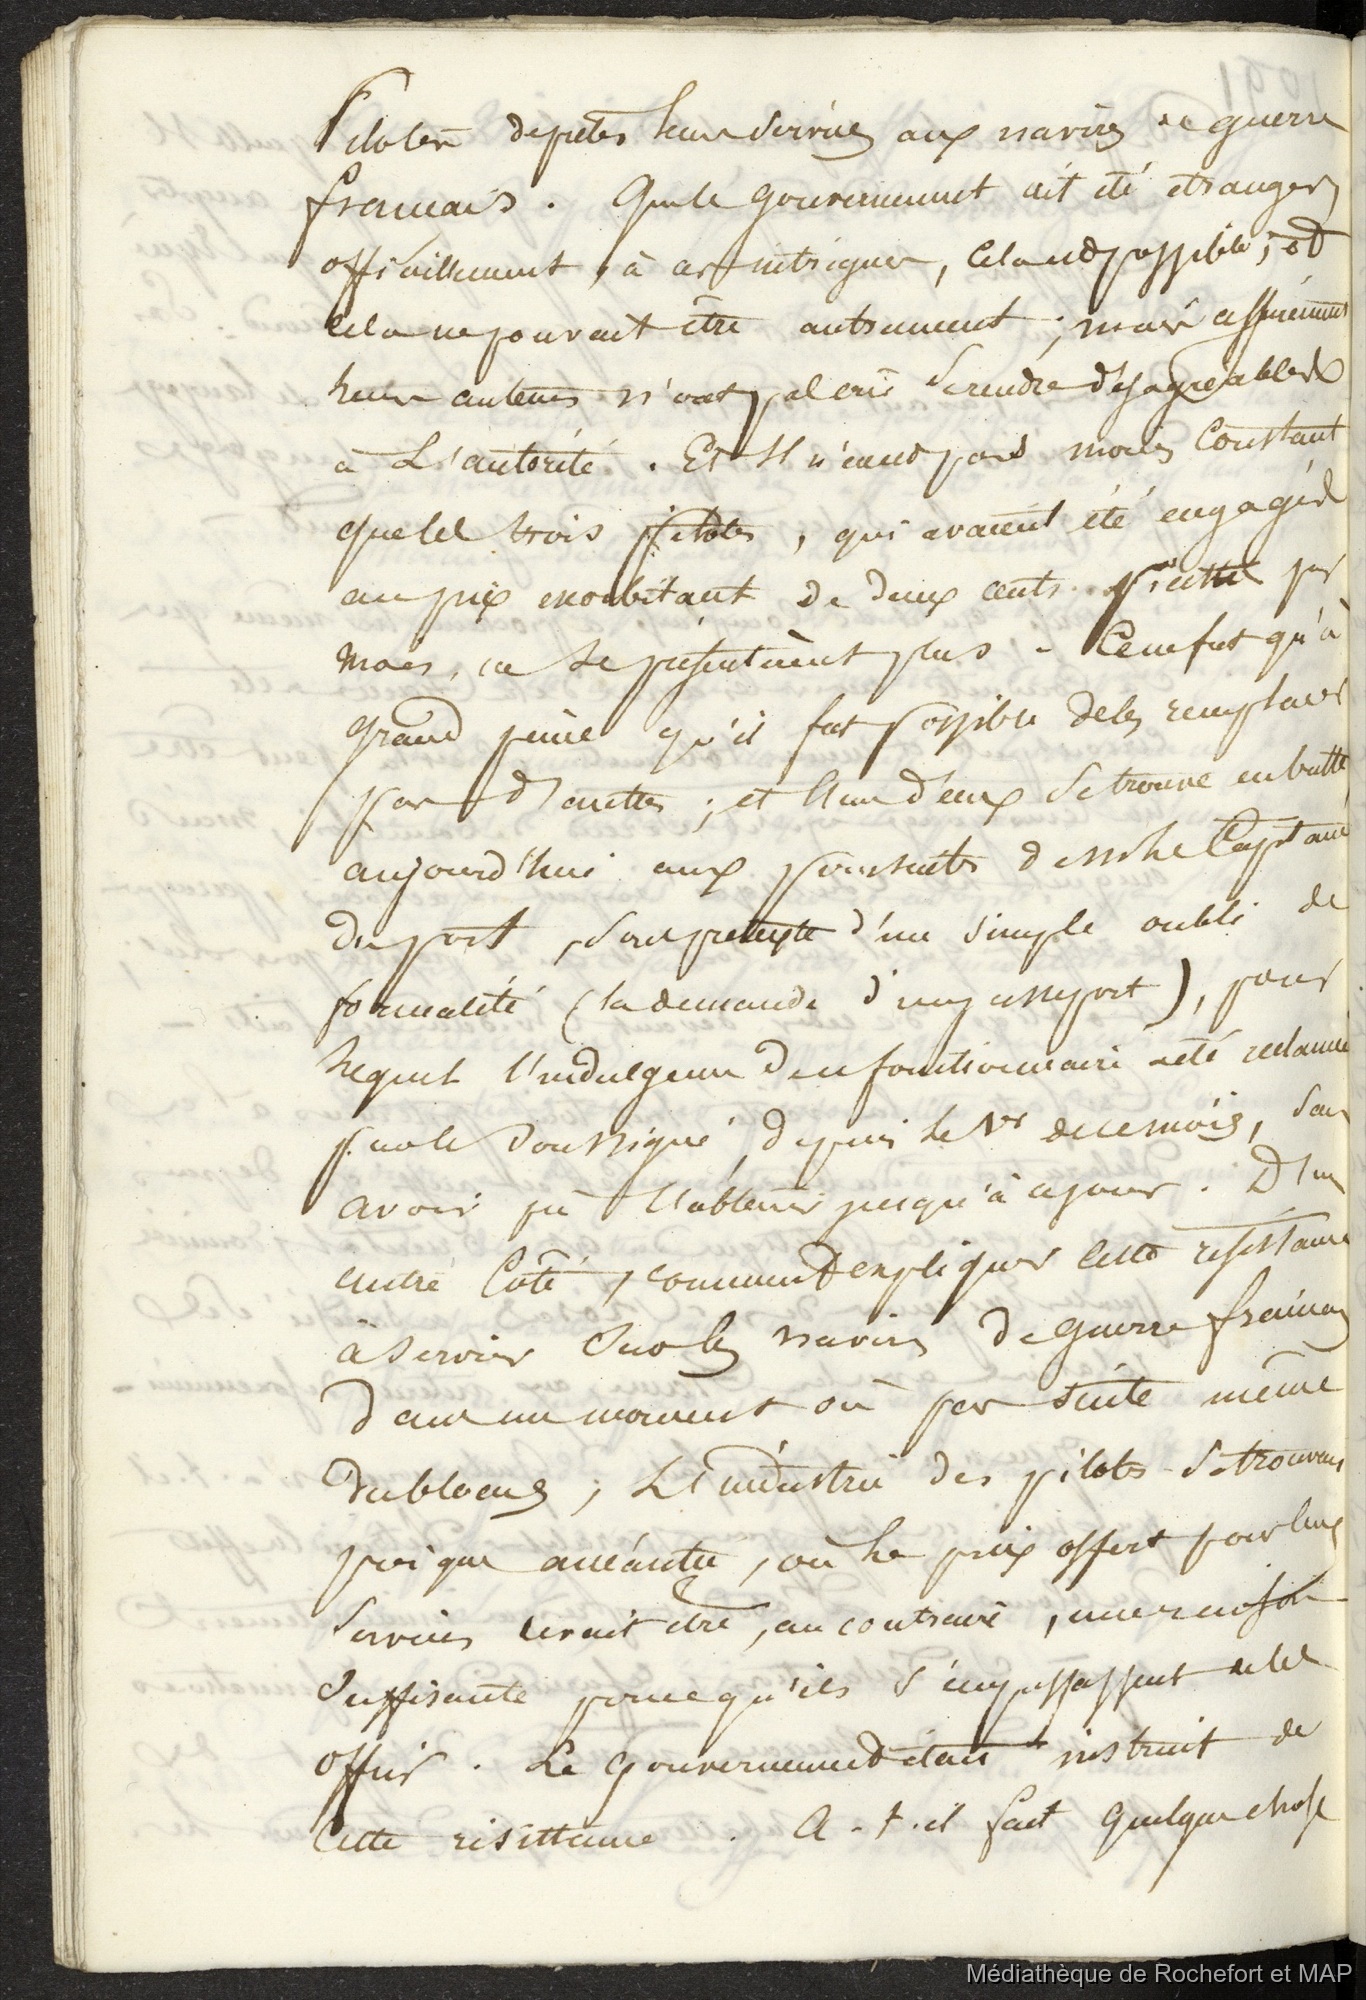 Pilotes de prêter leur services aux navires de guerre
français. Que le gouvernement ait été étranger,
officiellement, à ces intrigues, cela est possible; et
cela ne pouvait être autrement; mais assurément
leurs auteurs n'ont pas craint se rendre désagréables
à L'autorité. Et Il n'en est pas moins Constant
que les trois pilotes, qui avaient été engagés
au prix exorbitant de deux cents piastres par
mois, ne se présentèrent plus. Ce ne fut qu'à
grand peine qu'il fut possible de les remplacer
par d'autres; et l'un d'eux se trouve en butte,
aujourd'hui aux poursuites de Mr le Capitaine
du port, sous pretexte d'un simple oubli de
formalité (la demande d'un passeport), pour
lequel l'indulgence de ce fonctionnaire a été reclamée
par le Soussigné, depuis le 1er de ce mois, sans
avoir pu l'obtenir jusqu'à ce jour. D'un
autre Côté, comment expliquer cette résistance
à servir sur les navires de guerre français
dans un moment où par suite même
du blocus, L'industrie des pilotes se trouvant
presque anéantie, où le prix offert pour leurs
services devait être, au contraire, une raison
suffisante pour qu'ils s'empressassent de les
offrir. Le gouvernement était instruit de
cette résistance. A-t-il fait quelque chose
Médiathèque de Rochefort et MAP